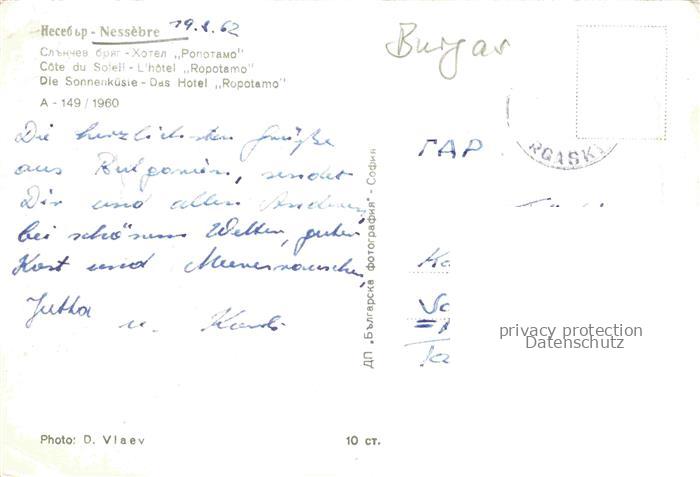 Несебър - Nessèbre 19.8.62
Слънчев бряг - Хотел „Ропотамо"
Côte du Soleil - L'hôtel „Ropotamo"
Die Sonnenküsie - Das Hotel „Ropotamo"
A - 149 / 1960
Burgas
Die herzlichsten Grüße
aus Bulgarien, sendet
Dir und allen Anderen,
bei schönem Wetter, guter
Kost und Meeresrauschen,
Jutta
u.
ДП „Българска фотография" - София
ГАР
RGASKI
privacy protection
Datenschutz
Photo: D. Vlaev
10 ст.